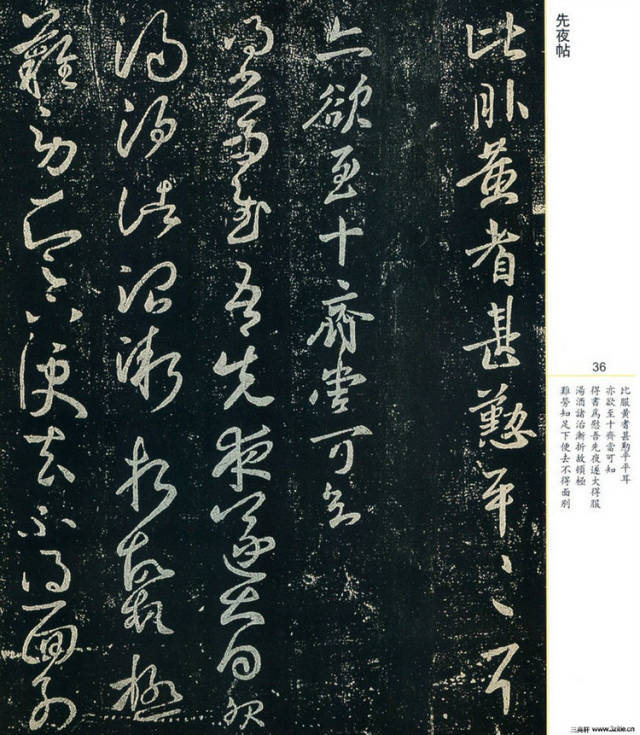 先夜帖
比服黄耆甚懃平〻耳
亦欲至十齊當可知
得書爲慰吾先夜遂大得服
湯酒諸治漸折故頓極
難勞知足下便去不得面别
36
比服黄耆甚懃平平耳
亦欲至十齊當可知
得書爲慰吾先夜遂大得服
湯酒諸治漸折故頓極
難勞知足下便去不得面别
三尚轩 www.3zitie.cn